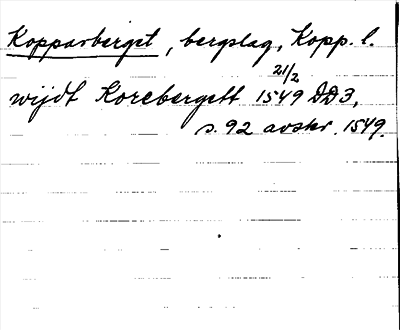 Kopparberget, bergslag, Kopp. l.
wijdt Korebergett 21/2 1549 DD 3,
s. 92 avskr. 1549.